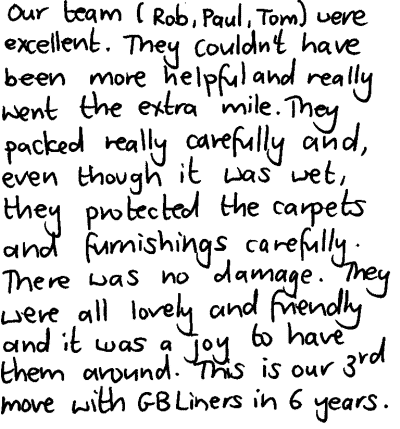 Our team (Rob, Paul, Tom) were
excellent. They couldn't have
been more helpful and really
went the extra mile. They
packed really carefully and,
even though it was wet,
they protected the carpets
and furnishings carefully.
There was no damage. They
were all lovely and friendly
and it was a joy to have
them around. This is our 3rd
move with GBLiners in 6 years.